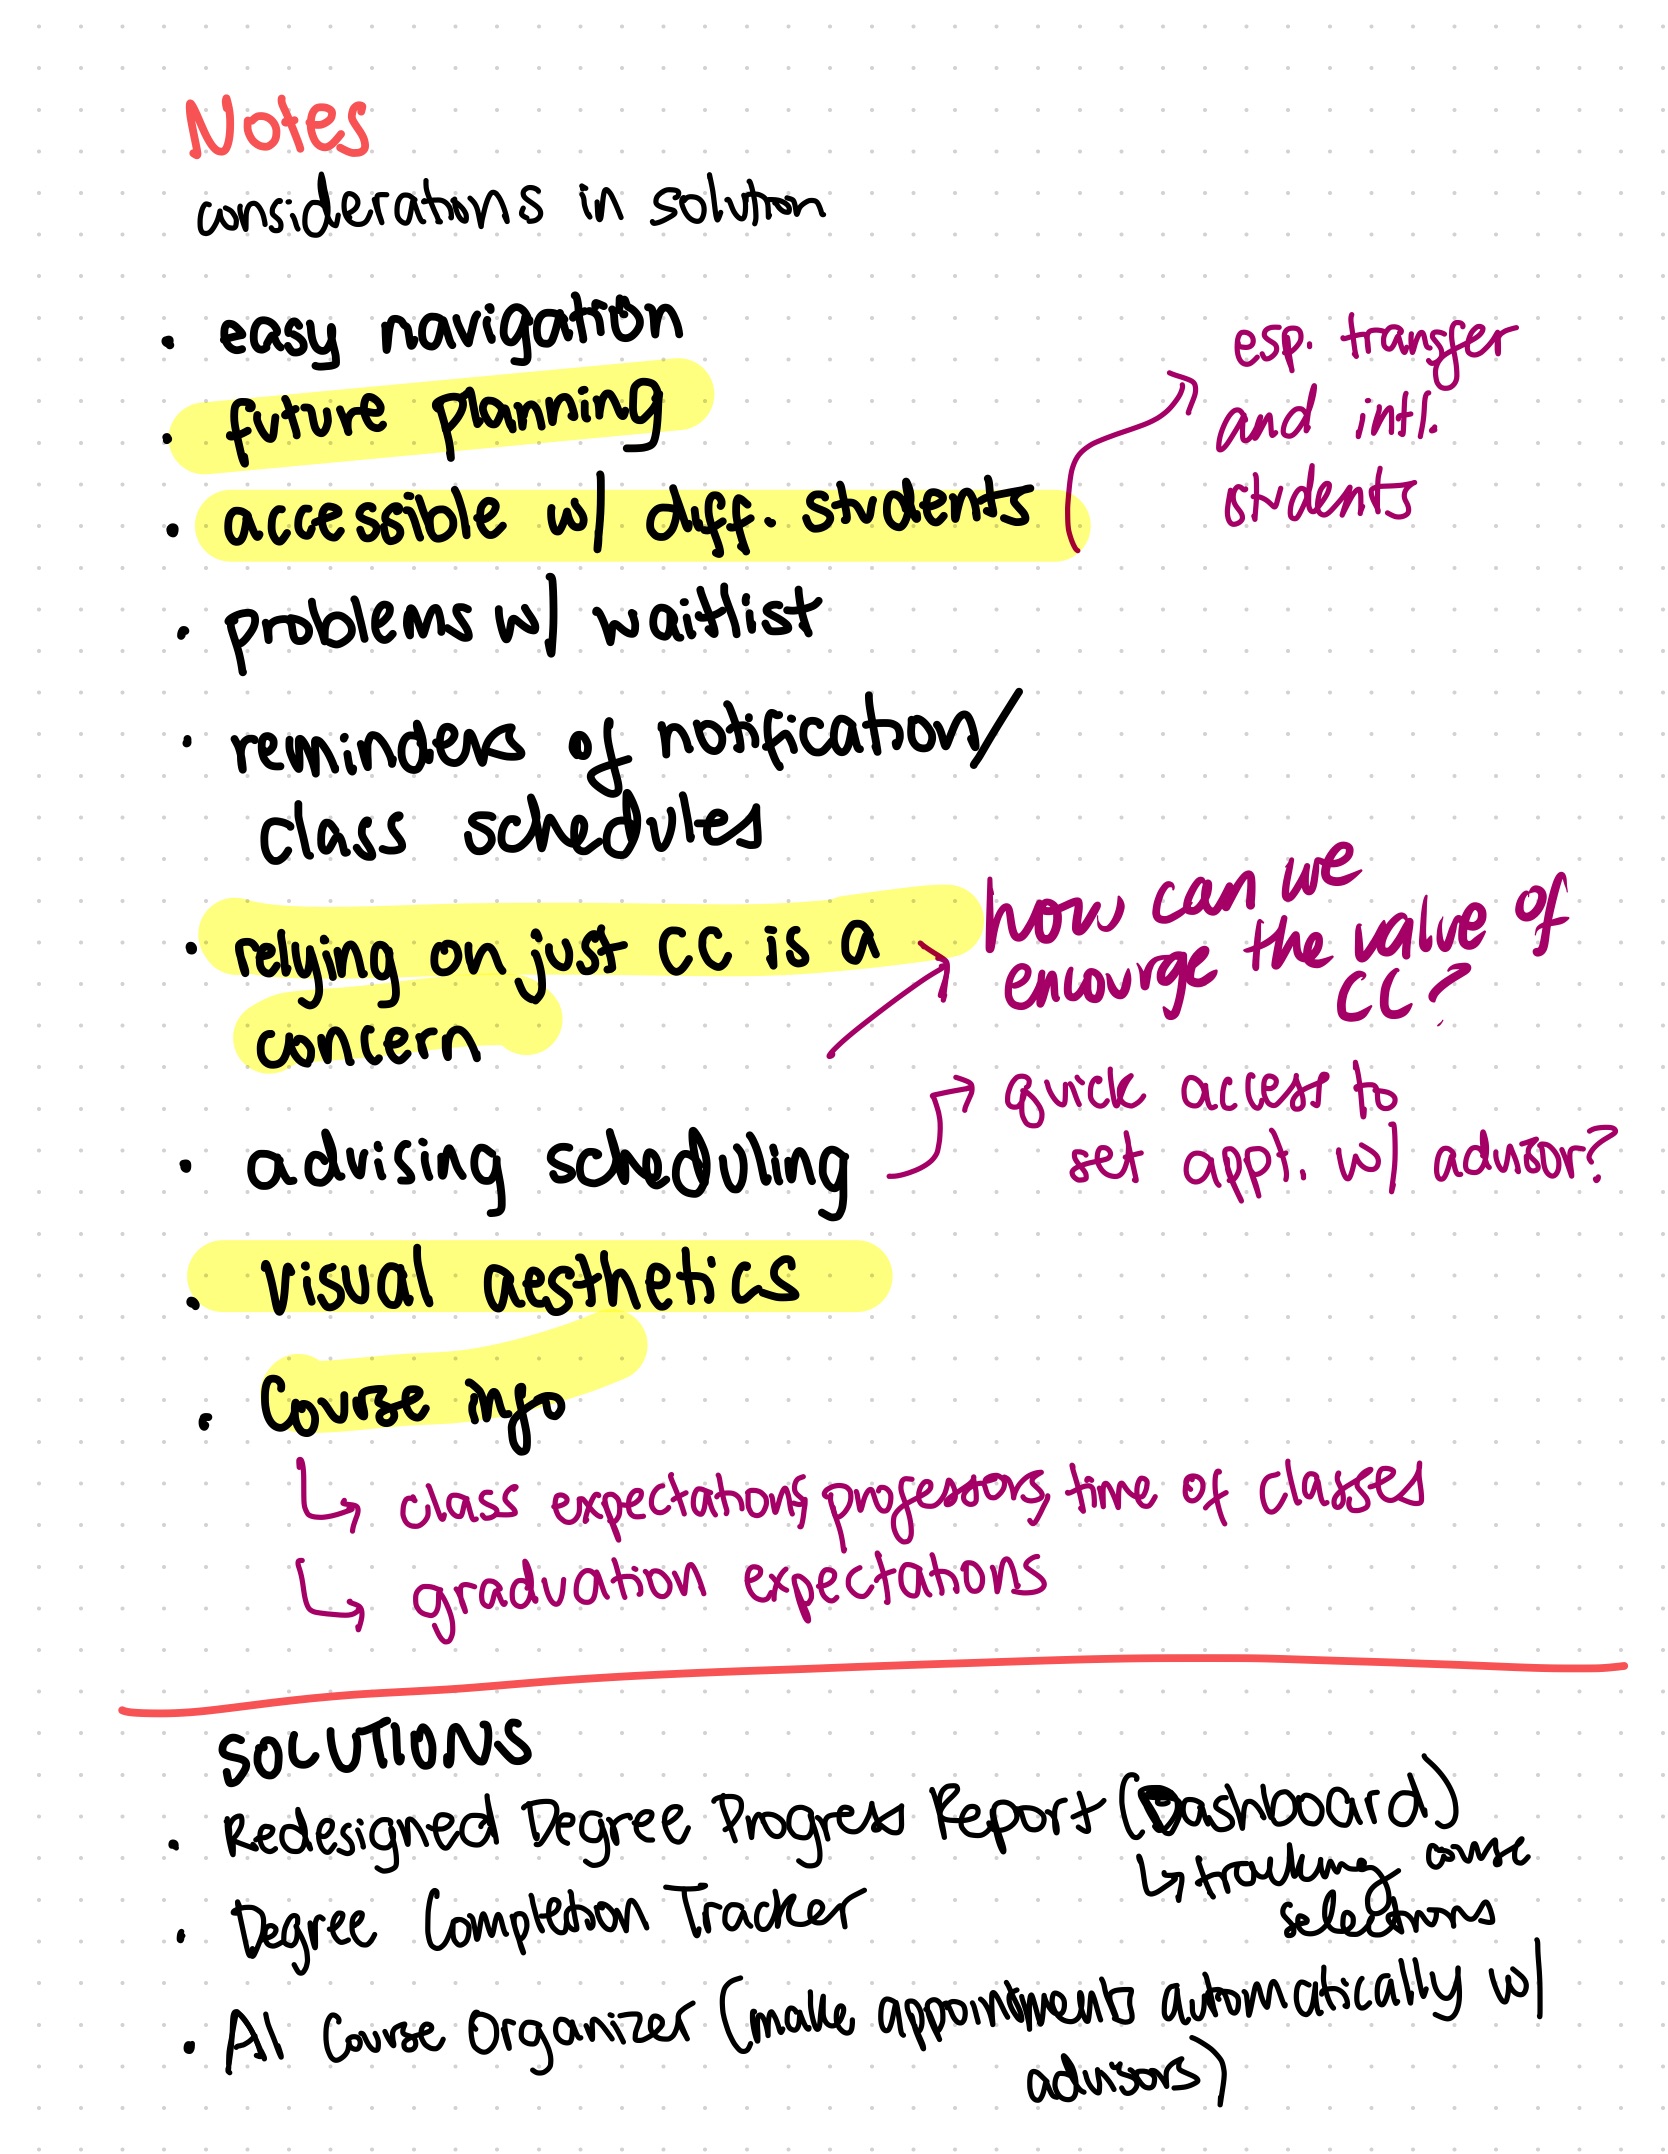 Notes
considerations in solution
• easy navigation
• future planning
• accessible w/ diff. students
esp. transfer
and intl.
students
• problems w/ waitlist
• reminders of notification/
class schedules
• relying on just CC is a
concern
how can we
encourge the value of
CC?
• advising scheduling
quick access to
set appt. w/ advisor?
• Visual aesthetics
• Course info
↳ class expectations, professors, time of classes
↳ graduation expectations
SOLUTIONS
• Redesigned Degree Progress Report (Dashboard)
↳ tracking course
selections
• Degree Completion Tracker
• AI Course Organizer (make appointments automatically w/
advisors)